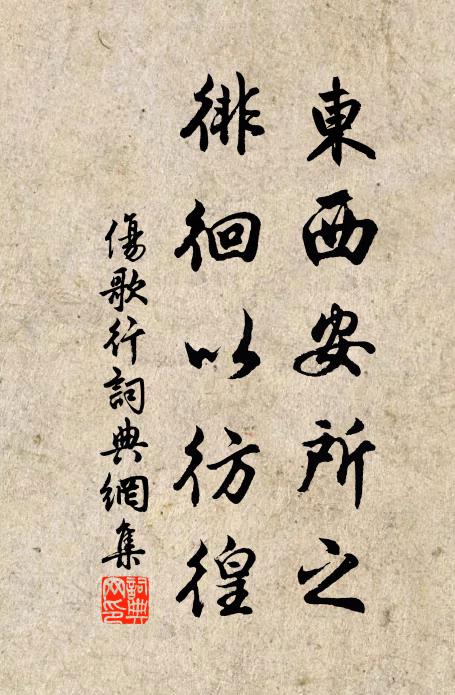 東西安所之
徘徊以彷徨
傷歌行詞典網集
詞典